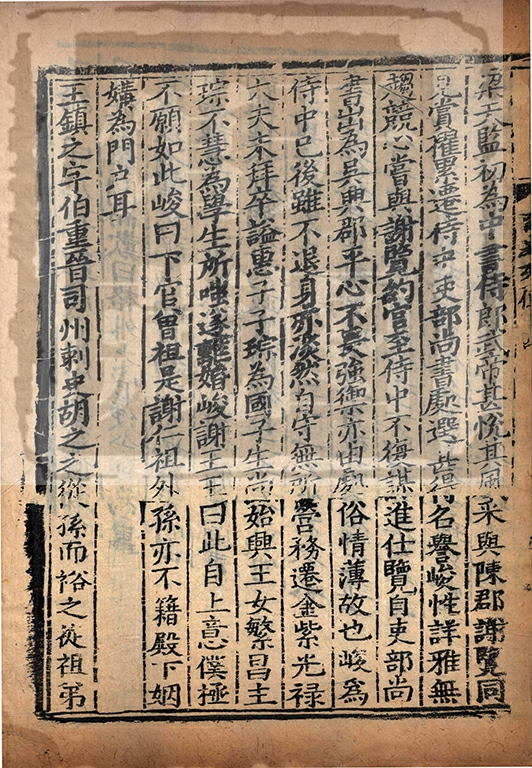 梁天監初為中書侍郎武帝甚悅其風采與陳郡謝覽同
見賞擢累遷侍中吏部尚書處選甚得名譽峻性詳雅無
趨競心嘗與謝覽約官至侍中不復謀進仕覽自吏部尚
書出為吳興郡平心不畏強禦亦由處俗情薄故也峻為
侍中已後雖不退身亦淡然自守無所營務遷金紫光禄
大夫未拜卒謚惠子子琮為國子生尚始興王女繁昌主
琮不慧為學生所嗤遂離婚峻謝王王曰此自上意僕極
不願如此峻曰下官曽祖是謝仁祖外孫亦不籍殿下姻
媾為門户耳
王鎮之字伯重晉司州刺史胡之之從孫而裕之從祖弟